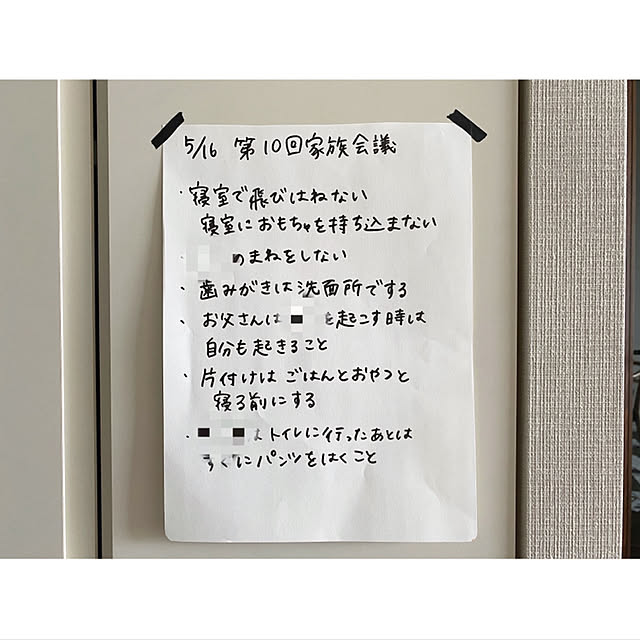 5/16 第10回家族会議
・寝室で飛びはねない
寝室におもちゃを持ち込まない
のまねをしない
・歯みがきは洗面所でする
・お父さんは を起こす時は
自分も起きること
・片付けは ごはんとおやつと
寝る前にする
・ はトイレに行ったあとは
すぐにパンツをはくこと